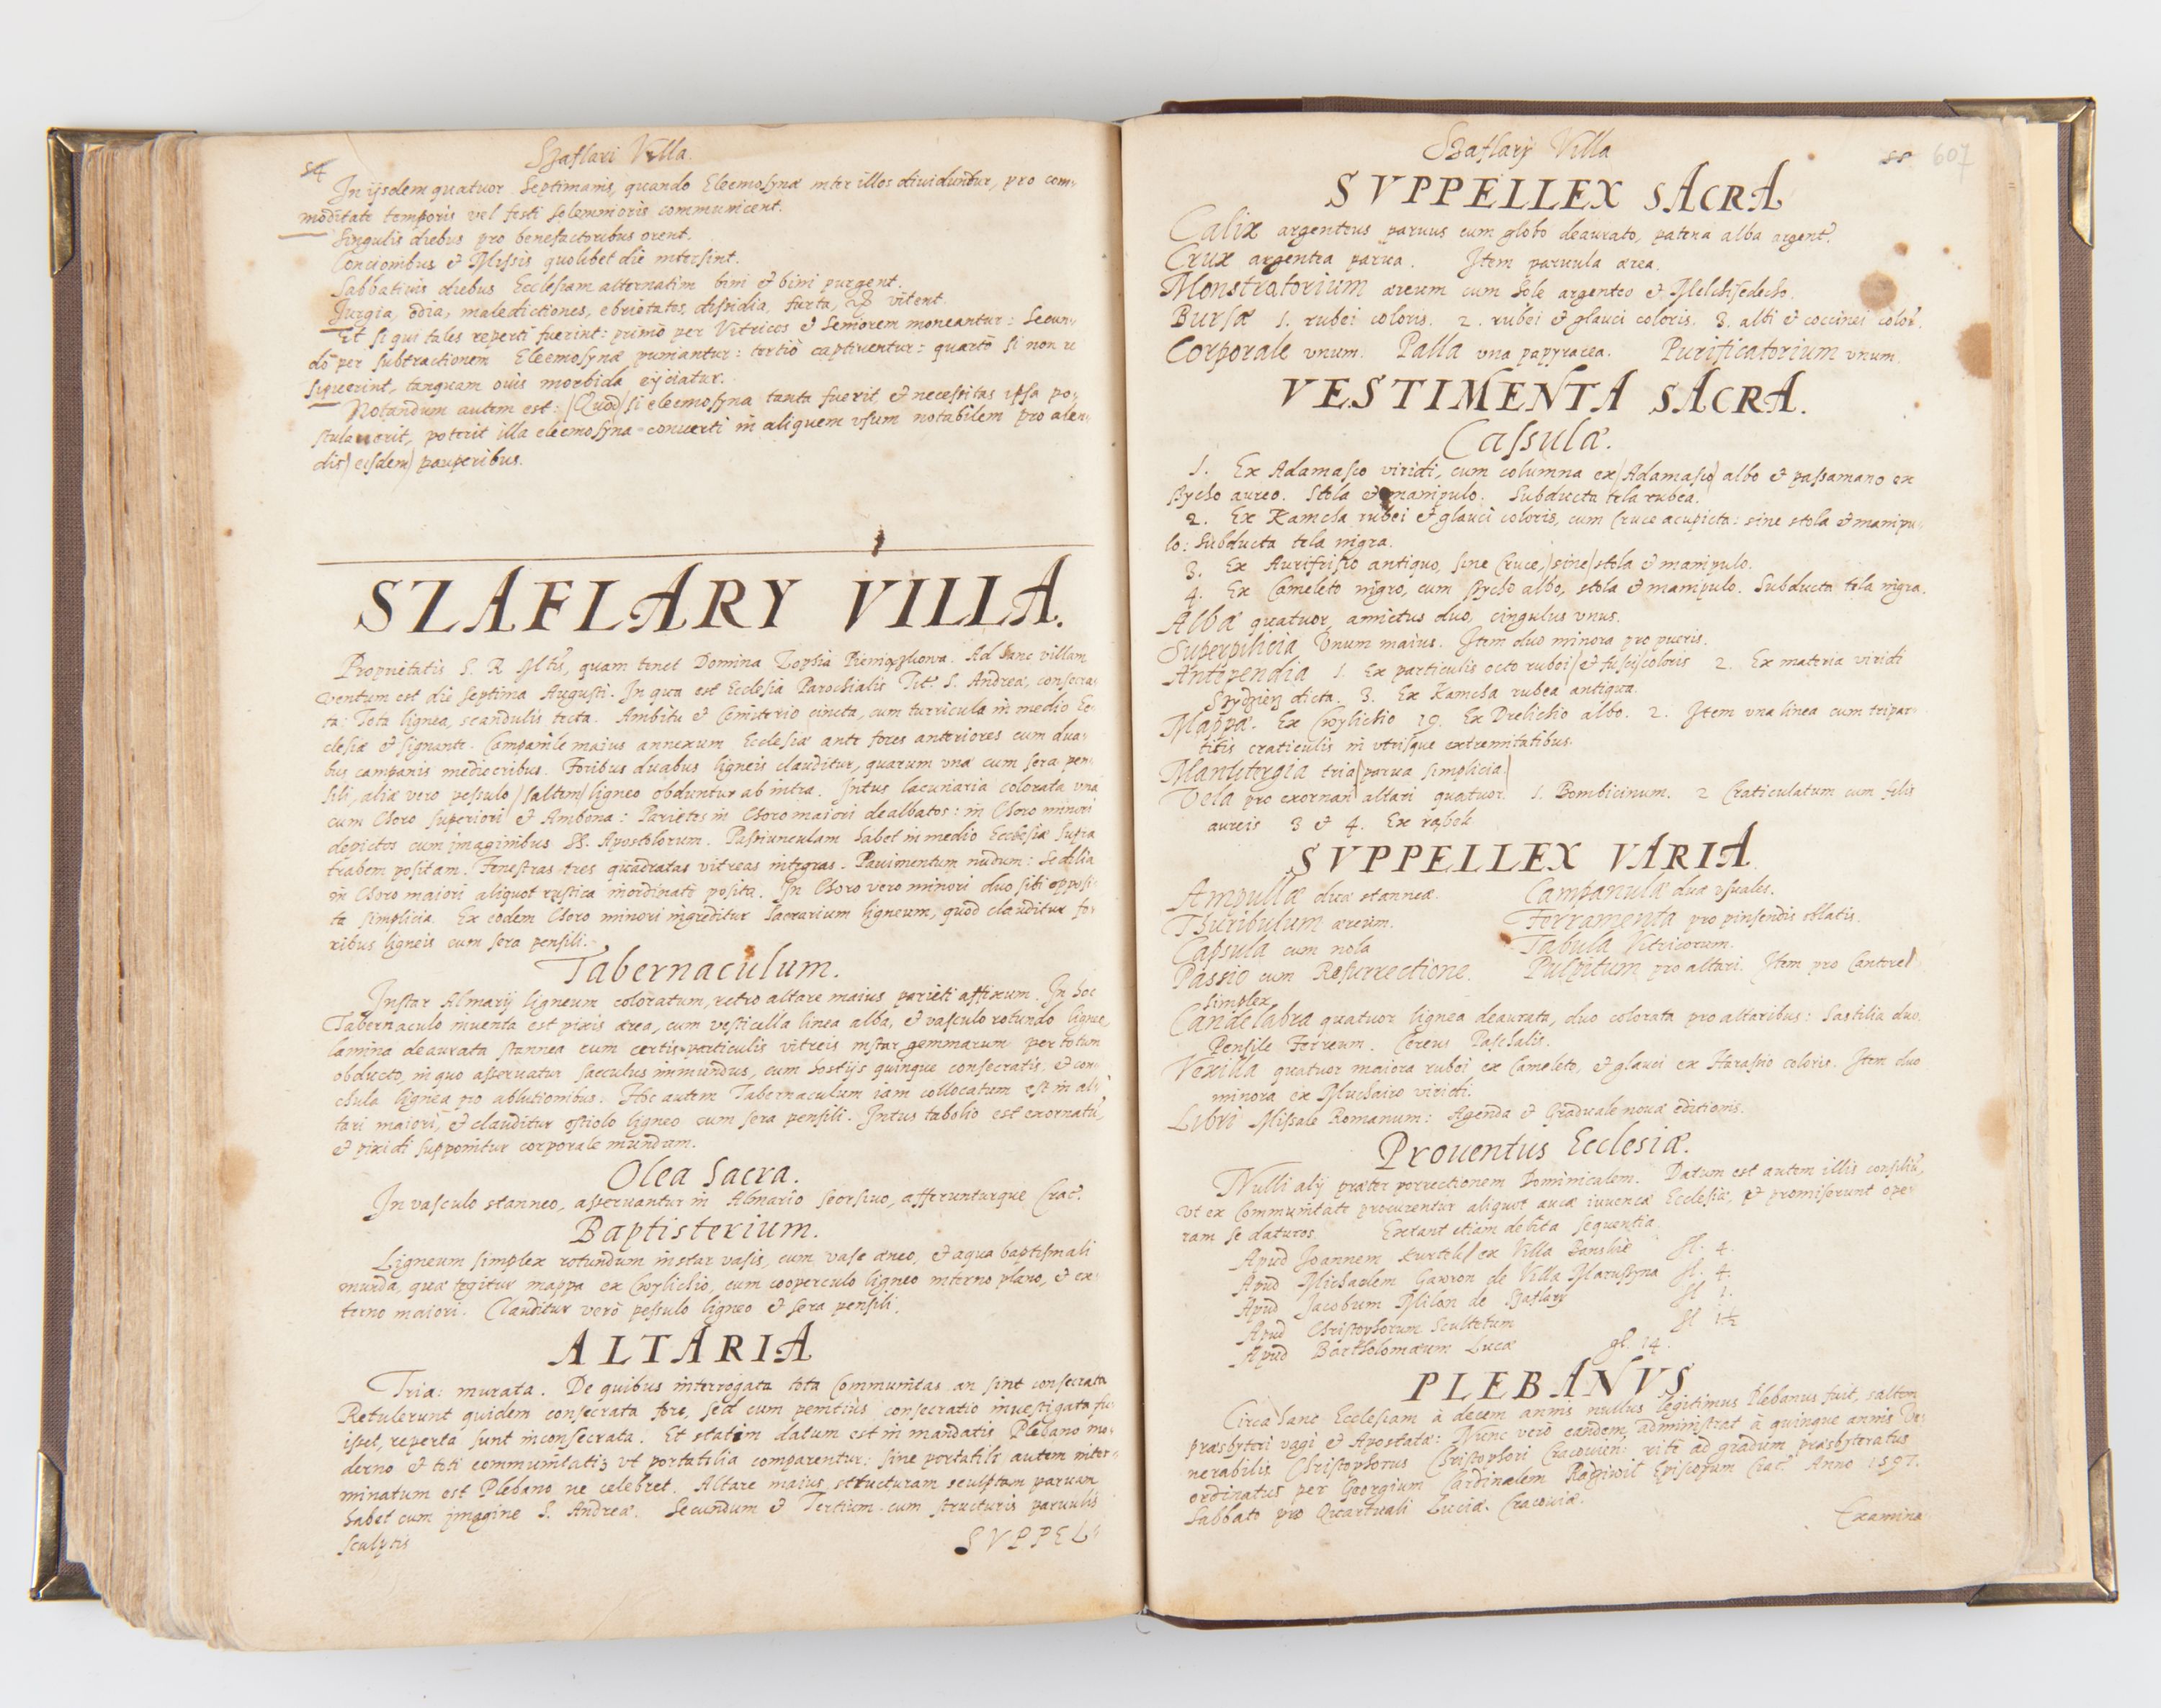 54
Szaflari Villa.
In ijsdem quatuor Septimanis, quando Eleemosyna inter illos diuiduntur, pro com-
moditate temporis vel festi solemnioris communicent.
Singulis diebus pro benefactoribus orent.
Concionibus et Missis quolibet die intersint.
Sabbatiuis diebus Ecclesiam alternatim bini et bini purgent.
Jurgia, odia, maledictiones, ebrietates, dissidia, furta, vitent.
Et si qui tales reperti fuerint: primò per Vitricos et Seniorem moneantur: Secun-
dò per subtractionem Eleemosynæ puniantur: tertiò captiuentur: quartò si non re
sipuerint, tanquam ouis morbida eijciatur.
Notandum autem est: Quod si eleemosyna tanta fuerit, et necessitas ipsa po-
stulauerit, poterit illa eleemosyna conuerti in aliquem vsum notabilem pro alen-
dis eisdem pauperibus.
SZAFLARY VILLA.
Proprietatis S. R. Mtis, quam tenet Domina Zophia Pieniążkowa. Ad hanc villam
ventum est die septima Augusti. In qua est Ecclesia Parochialis Tit. S. Andreæ, consecra-
ta: Tota lignea, scandulis tecta. Ambitu et Cæmiterio cincta, cum turricula in medio Ec-
clesiæ et signante. Campanile maius annexum Ecclesiæ ante fores anteriores cum dua-
bus campanis mediocribus. Foribus duabus ligneis clauditur, quarum vna cum sera pen-
sili, aliæ vero pessulo saltem ligneo obduntur ab intra. Intus lacunaria colorata vna
cum Choro superiori et Ambona: Parietes in Choro maiori dealbatos: in Choro minori
depictos cum imaginibus SS. Apostolorum. Passiunculam habet in medio Ecclesiæ supra
trabem positam. Fenestras tres quadratas vitreas integras. Pauimentum nudum: Sedilia
in Choro maiori aliquot rustica inordinatè posita. In Choro vero minori duo sibi opposi-
ta simplicia. Ex eodem Choro minori ingreditur Sacrarium ligneum, quod clauditur fo-
ribus ligneis cum sera pensili.
Tabernaculum.
Instar Almarij ligneum coloratum, retro altare maius parieti affixum. In hoc
Tabernaculo inuenta est pixis ærea, cum vesticella linea alba, et vasculo rotundo ligneo,
lamina deaurata stannea cum certis particulis vitreis instar gemmarum per totum
obducto, in quo asseruatur sacculus immundus, cum hostijs quinque consecratis, et con-
chula lignea pro ablutionibus. Hoc autem Tabernaculum iam collocatum est in al-
tari maiori, et clauditur ostiolo ligneo cum sera pensili. Intus tabolio est exornatũ,
et pixidi supponitur corporale mundum.
Olea Sacra.
In vasculo stanneo, asseruantur in Almario seorsiuo, afferunturque Crac.
Baptisterium.
Ligneum simplex rotundum instar vasis, cum vase æneo, et aqua baptismali
munda, quæ tegitur mappa ex Cwylichio, cum cooperculo ligneo interno plano, et ex-
terno maiori. Clauditur verò pessulo ligneo et sera pensili.
ALTARIA
Tria: murata. De quibus interrogata tota Communitas an sint consecrata
Retulerunt quidem consecrata fore, sed cum penitiùs consecratio inuestigata fu-
isset, reperta sunt inconsecrata. Et statim datum est in mandatis Plebano mo-
derno et toti communitati, vt portatilia comparentur: sine portatili autem inter-
minatum est Plebano ne celebret. Altare maius structuram sculptam paruam
habet cum imagine S. Andreæ. Secundum et Tertium cum structuris paruulis
sculptis
SVPPEL-
Szaflary Villa
55
607
SVPPELLEX SACRA
Calix argenteus paruus cum globo deaurato, patena alba argent.
Crux argentea parua. Item paruula ærea.
Monstratorium æreum cum Sole argenteo et Melchisedecho.
Bursæ 1. rubei coloris. 2. rubei et glauci coloris. 3. albi et coccinei color.
Corporale vnum. Palla vna papyracea. Purificatorium vnum.
VESTIMENTA SACRA.
Casulæ.
1. Ex Adamasco viridi, cum columna ex Adamasco albo et passamano ex
szycho aureo. Stola et manipulo. Subducta tela rubea.
2. Ex Kamcha rubei et glauci coloris, cum Cruce acupicta: sine stola et manipu-
lo: Subducta tela nigra.
3. Ex Aurifrisio antiquo, sine Cruce, sine stola et manipulo.
4. Ex Cameleto nigro, cum szycho albo, stola et manipulo. Subducta tela nigra.
Albæ quatuor, amictus duo, cingulus vnus.
Superpilicia Vnum maius. Item duo minora pro pueris.
Antipendia 1. Ex particulis octo rubei et fusci coloris 2. Ex materia viridi
dicta. 3. Ex Kamcha rubea antiqua.
Mappæ. Ex Cwylichio 19. Ex Drelichio albo. 2. Item vna linea cum tripar-
titis craticulis in vtrisque extremitatibus.
Manutergia tria parua simplicia
Vela pro exornan altari quatuor. 1. Bombicinum. 2 Craticulatum cum filis
aureis 3 et 4. Ex rąbek
SVPPELLEX VARIA
Ampullæ duæ stanneæ. Campanulæ duæ vsuales.
Thuribulum æreum. Ferramenta pro pinsendis oblatis.
Capsula cum nola Tabula Vitricorum.
Passio cum Resurrectione. Pulpitum pro altari. Item pro Cantore
simplex
Candelabra quatuor lignea deaurata, duo colorata pro altaribus: hastilia duo.
Pensile Ferreum. Cereus Paschalis.
Vexilla quatuor maiora rubei ex Cameleto, et glauci ex Harasno coloris. Item duo
minora ex Muchairo viridi.
Libri Missale Romanum: Agenda et Graduale nouæ editionis.
Prouentus Ecclesiæ.
Nulli alij præter porrectionem Dominicalem. Datum est autem illis consiliũ,
vt ex Communitate procurentur aliquot auca iuuenca Ecclesiæ, et promiserunt ope-
ram se daturos. Extant etiam debita sequentia.
Apud Joannem ex Villa Banskie fl. 4.
Apud Michaelem Gawron de Villa Maruszyna fl. 4.
Apud Jacobum Milon de Szaflary fl 1.
Apud Christophorum Scultetum fl 1½
Apud Bartholomæum Lucæ gr. 14.
PLEBANVS
Circa hanc Ecclesiam à decem annis nullus legitimus Plebanus fuit, saltem
præsbyteri vagi et Apostatæ: Nunc verò eandem administrat à quinque annis Ve-
nerabilis Christophorus Christophori Cracouien: ritè ad gradum præsbyteratus
ordinatus per Georgium Cardinalem Radziwił Episcopum Crac. Anno 1597.
Sabbato pro Quartuali Luciæ. Cracouiæ.
Examina